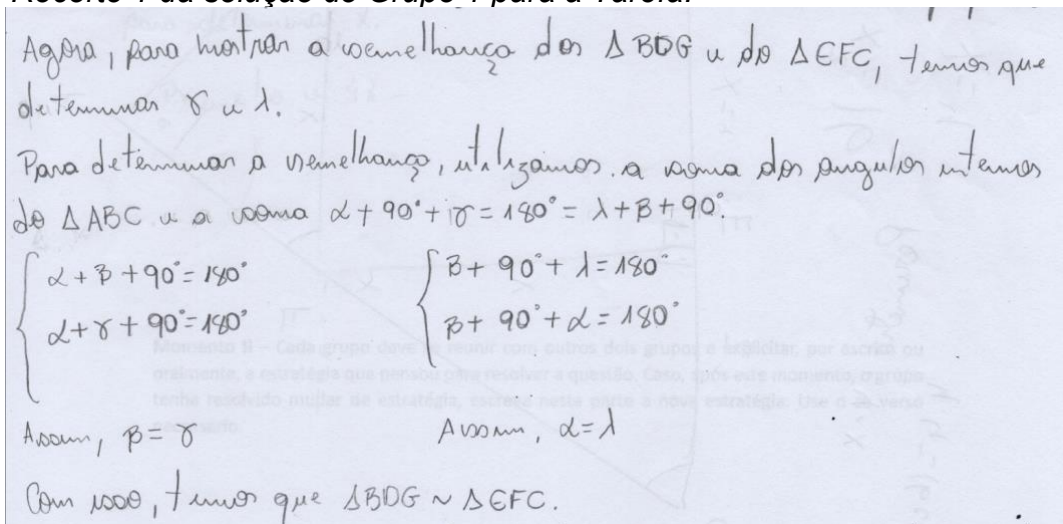 Recorte 1 da solução do Grupo 1 para a Tarefa.
Agora, para mostrar a semelhança dos Δ BDG e do Δ EFC, temos que
determinar γ e λ.
Para determinar a semelhança, utilizamos a soma dos angulos internos
do Δ ABC e a soma α + 90° + γ = 180° = λ + β + 90°.
α + β + 90° = 180° β + 90° + λ = 180°
α + γ + 90° = 180° β + 90° + α = 180°
Momento II – Cada grupo deve se reunir com outros dois grupos e explicitar, por escrito ou
oralmente, a estratégia que pensou para resolver a questão. Caso, após este momento, o grupo
tenha resolvido mudar de estratégia, escreva nesta parte a nova estratégia. Use o verso
Assim, β = γ Assim, α = λ
Com isso, temos que ΔBDG ~ ΔEFC.